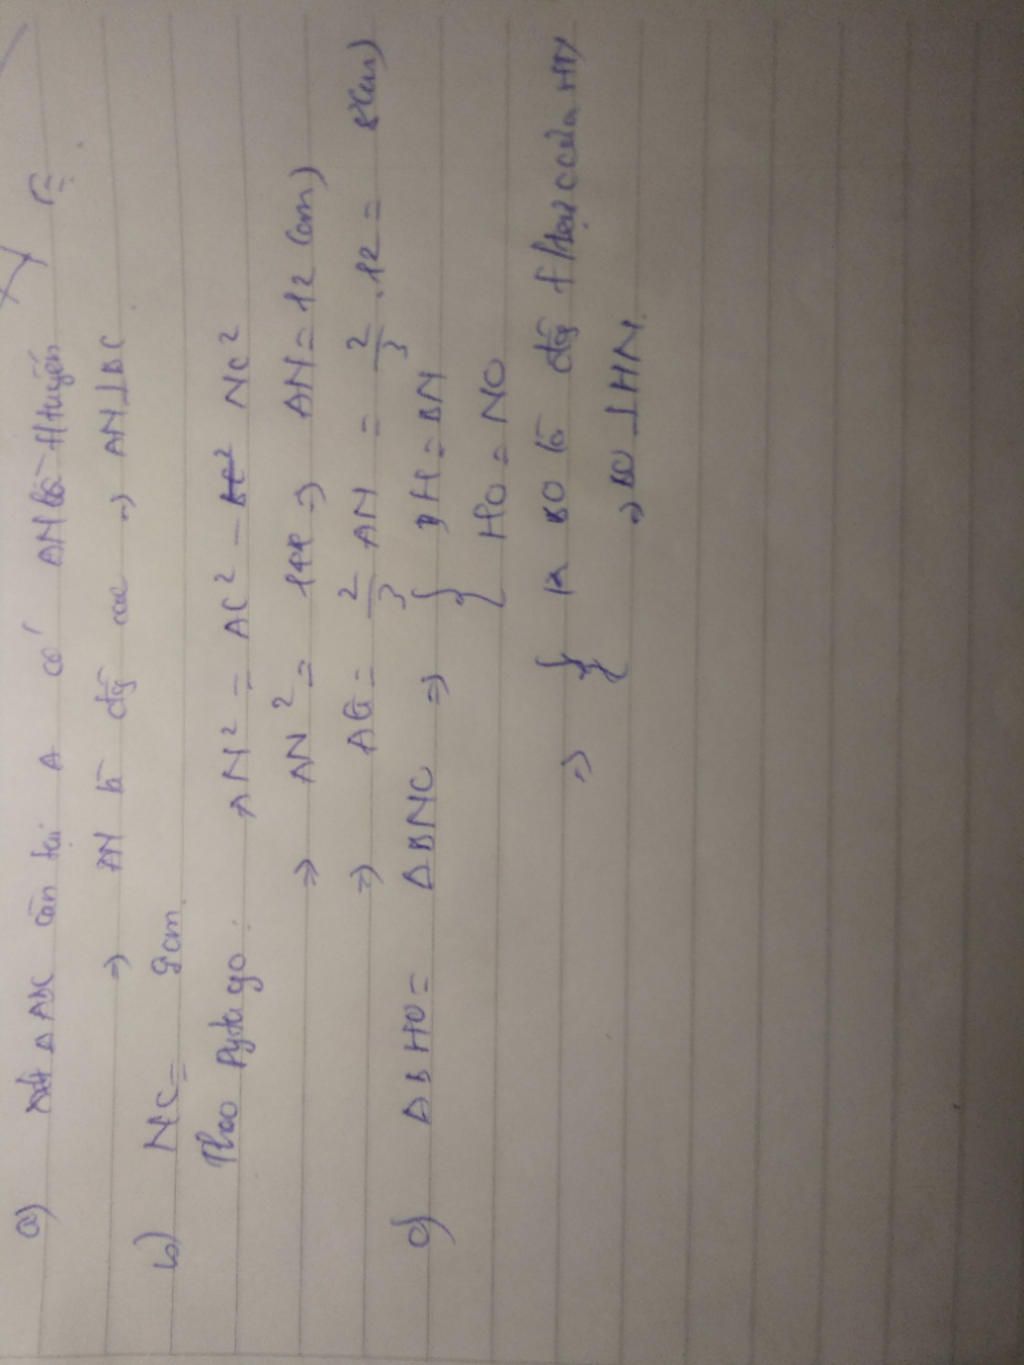 a) Xét Δ ABC cân tại A có AN là trtuyến
=> AN là đg cao => AN⊥BC
b) NC = 9cm
Theo Pytago: AN² = AC² - NC²
=> AN² = 144 => AN = 12 (cm)
=> AG = 2/3 AN = 2/3 . 12 = 8(cm)
c) Δ BHO = Δ BNO => { BH = BN
HO = NO
=> { BO là đg của HN
=> BO ⊥ HN